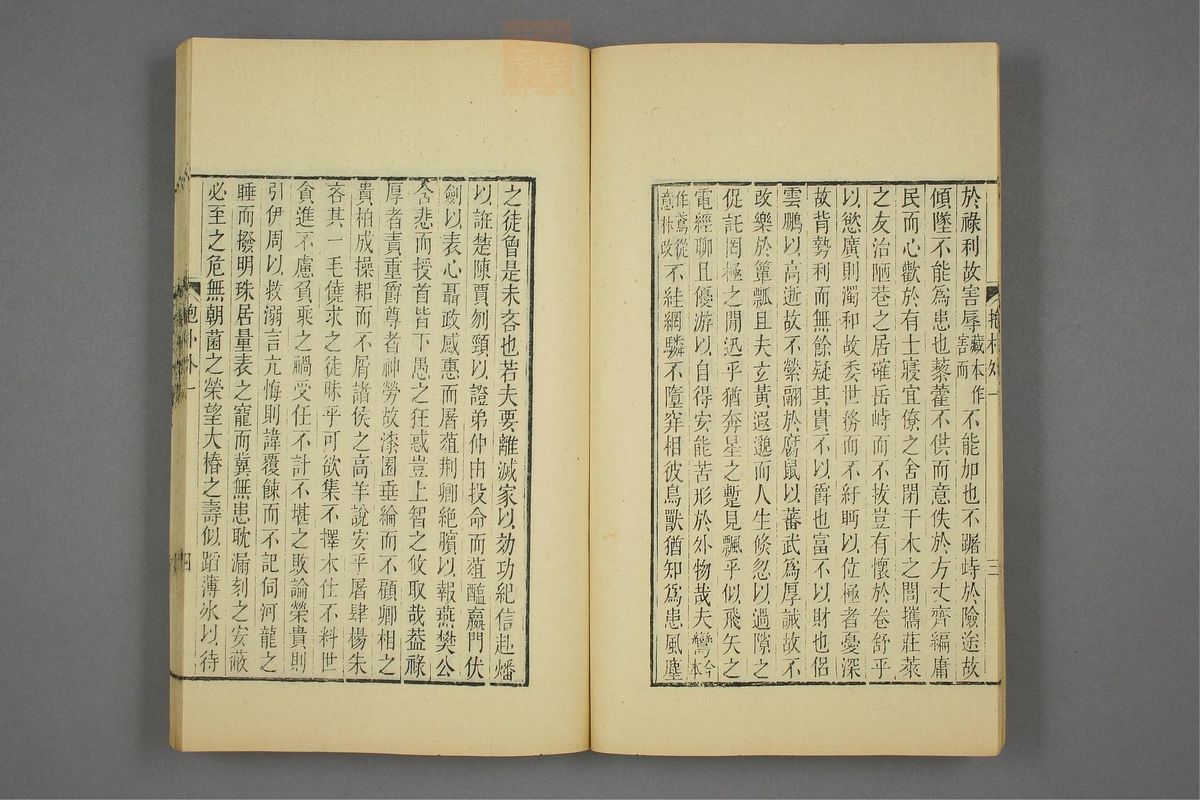 於祿利故害辱藏本作害而不能加也不躇峙於險途故
傾墜不能爲患也藜藿不供而意佚於方丈齊編庸
民而心歡於有土寢宜僚之舍閉干木之閭攜莊萊
之友治陋巷之居確岳峙而不拔豈有懷於卷舒乎
以慾廣則濁和故委世務而不紆眄以位極者憂深
故背勢利而無餘疑其貴不以爵也富不以財也侶
雲鵬以高逝故不縈翮於腐鼠以蕃武爲厚誡故不
改樂於簞瓢且夫玄黃遐邈而人生倏忽以過隙之
促託罔極之閒迅乎猶奔星之蹔見飄乎似飛矢之
電經聊且優游以自得安能苦形於外物哉夫鸞今本
作鳶從意林改不絓網驎不墮穽相彼鳥獸猶知爲患風塵
抱朴外一
三
之徒曾是未吝也若夫要離滅家以効功紀信赴燔
以誑楚陳賈刎頸以證弟仲由投命而葅醢嬴門伏
劍以表心聶政感惠而屠葅荆卿絶臏以報燕樊公
含悲而授首皆下愚之狂惑豈上智之攸取哉葢祿
厚者責重爵尊者神勞故漆園垂綸而不顧卿相之
貴柏成操耜而不屑諸侯之高羊說安乎屠肆楊朱
吝其一毛僥求之徒昧乎可欲集不擇木仕不料世
貪進不慮負乘之禍受任不計不堪之敗論榮貴則
引伊周以救溺言亢悔則諱覆餗而不記伺河龍之
睡而撥明珠居量表之寵而冀無患耽漏刻之安蔽
必至之危無朝菌之榮望大椿之壽似蹈薄冰以待
抱朴外一
四